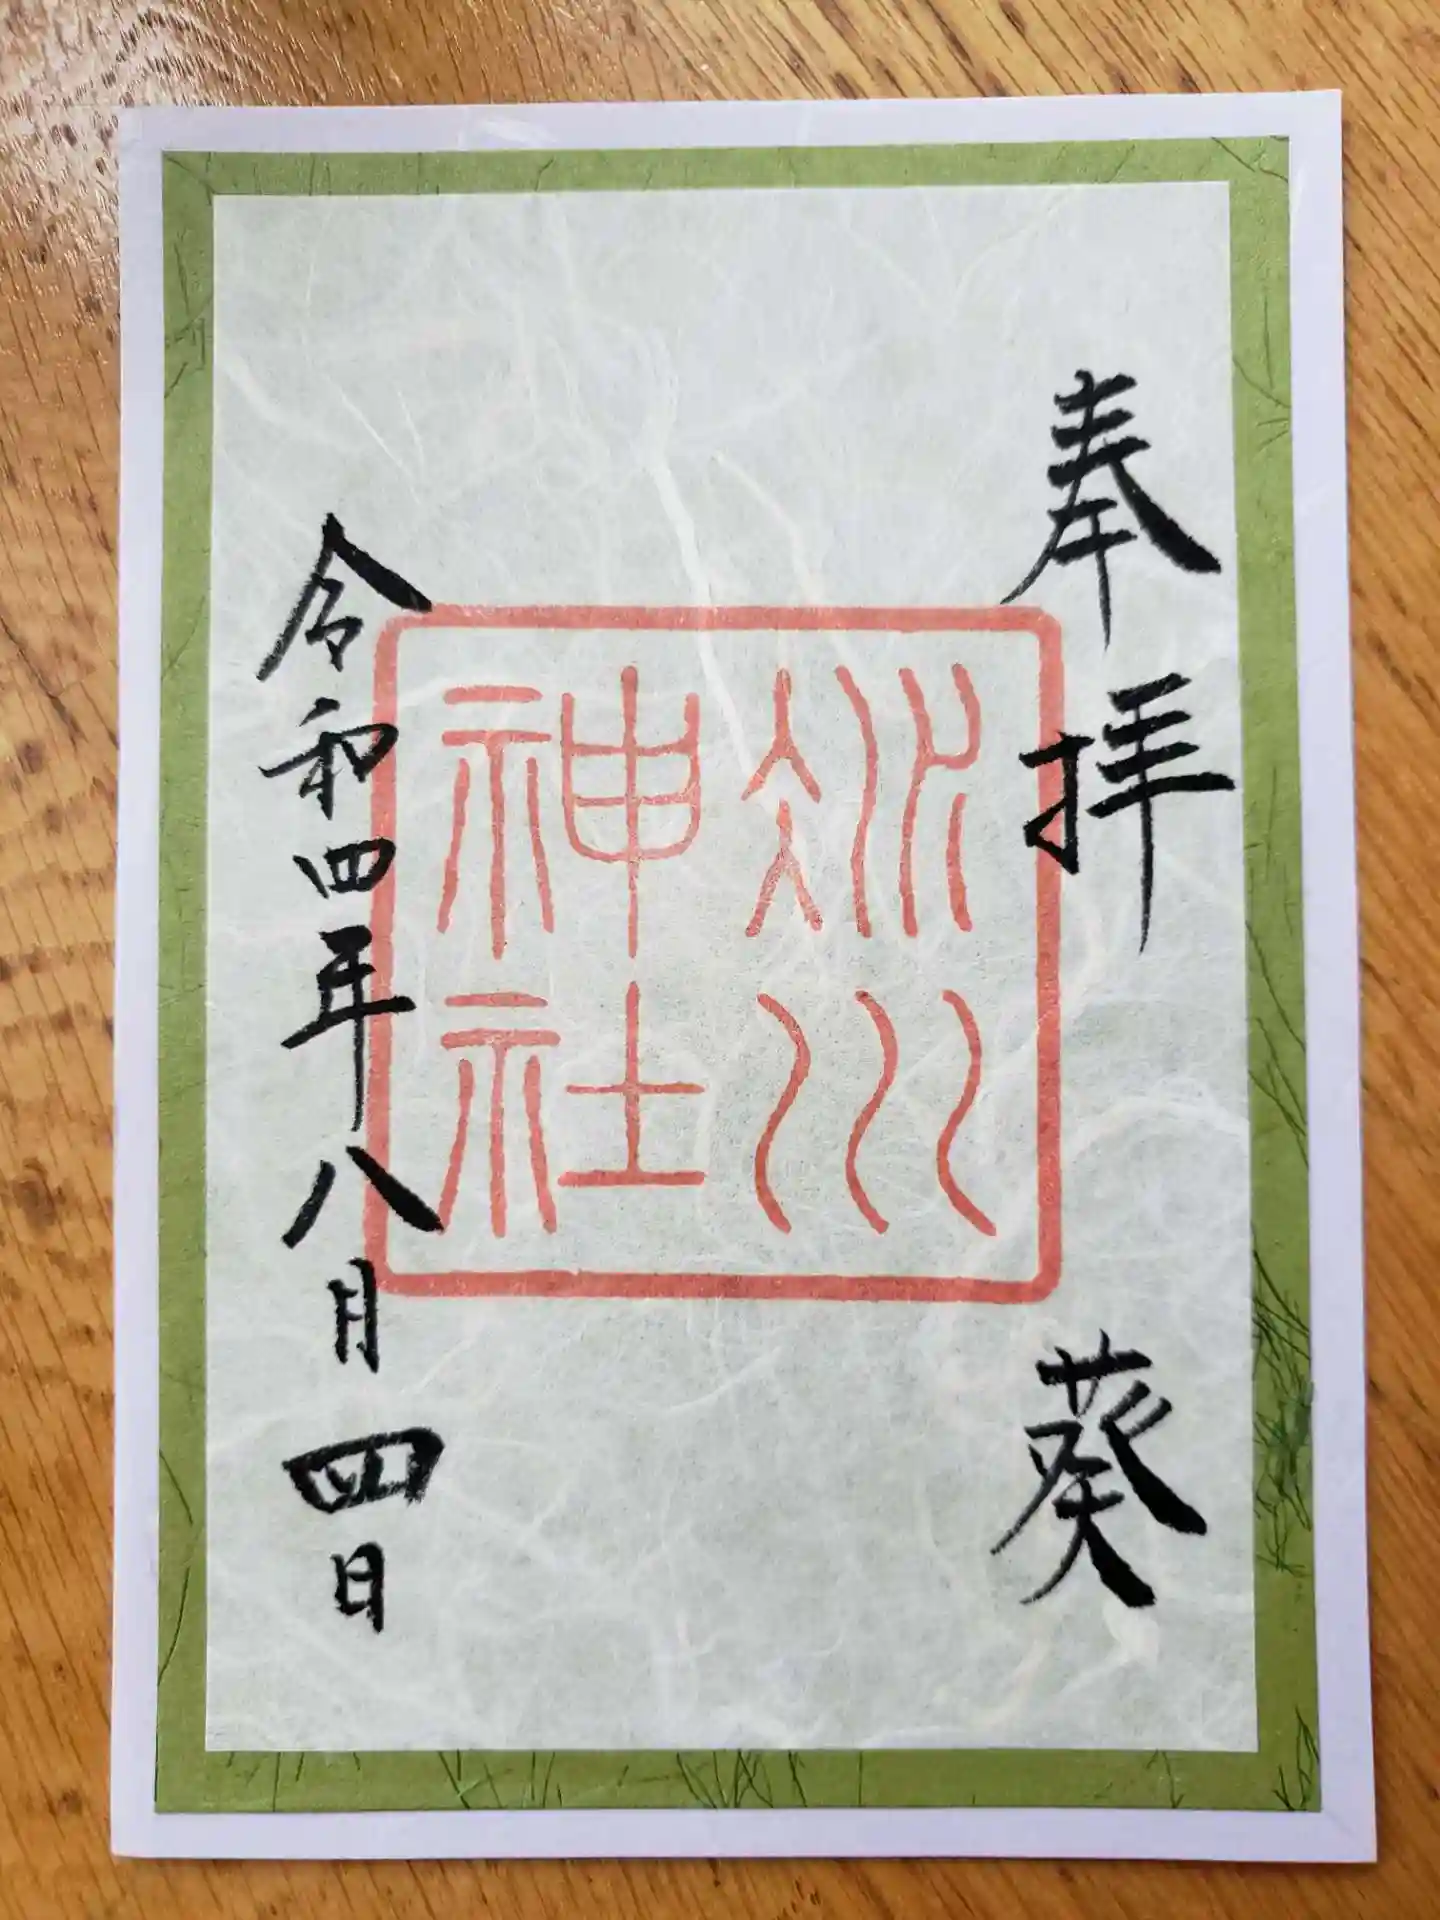 奉拝
葵
冰川
神社
令和四年八月四日